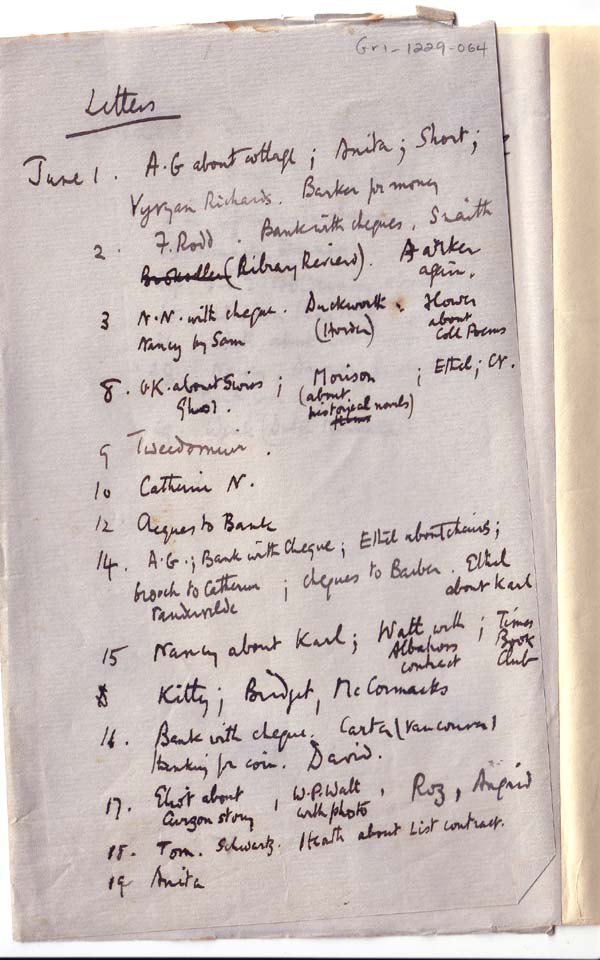 Gr1-1229-064
Letters
June 1. A.G about cottage; Anita; Short;
Vyvyan Richards. Barker for money
2. F. Rodd. Bank with cheques.
(Library Review). again.
3 N.N. with cheque. Duckworth.
Nancy by Sam (Horder) about Coll Poems
8. about Swiss Ghost. ; Morison (about historical novels) ; Ethel;
9 Tweedsmuir.
10 Catherine N.
12 to Bank
14. A.G.; Bank with cheque; Ethel about chairs;
brooch to Catherine ; cheques to Barber. Ethel
Vandervelde about Karl
15 Nancy about Karl; Watt with Albatross contract ; Times Book Club
Kitty; Bridget, McCormacks
16. Bank with cheque. Carter (Vancouver)
thanking for coin. David.
17. Eliot about Curzon story, W.P. Watt with photo, Roz,
18. Tom. Schwartz. Heath about List contract.
19 Anita